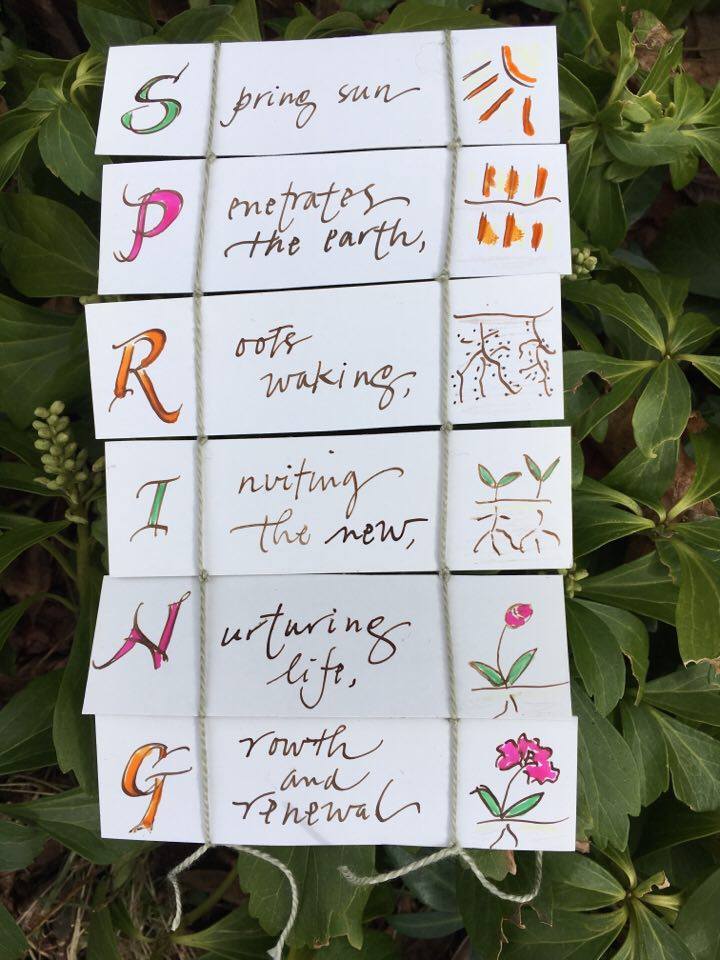 Spring sun
Penetrates
the earth,
Roots
waking,
Inviting
the new,
Nurturing
life,
Growth
and
renewal